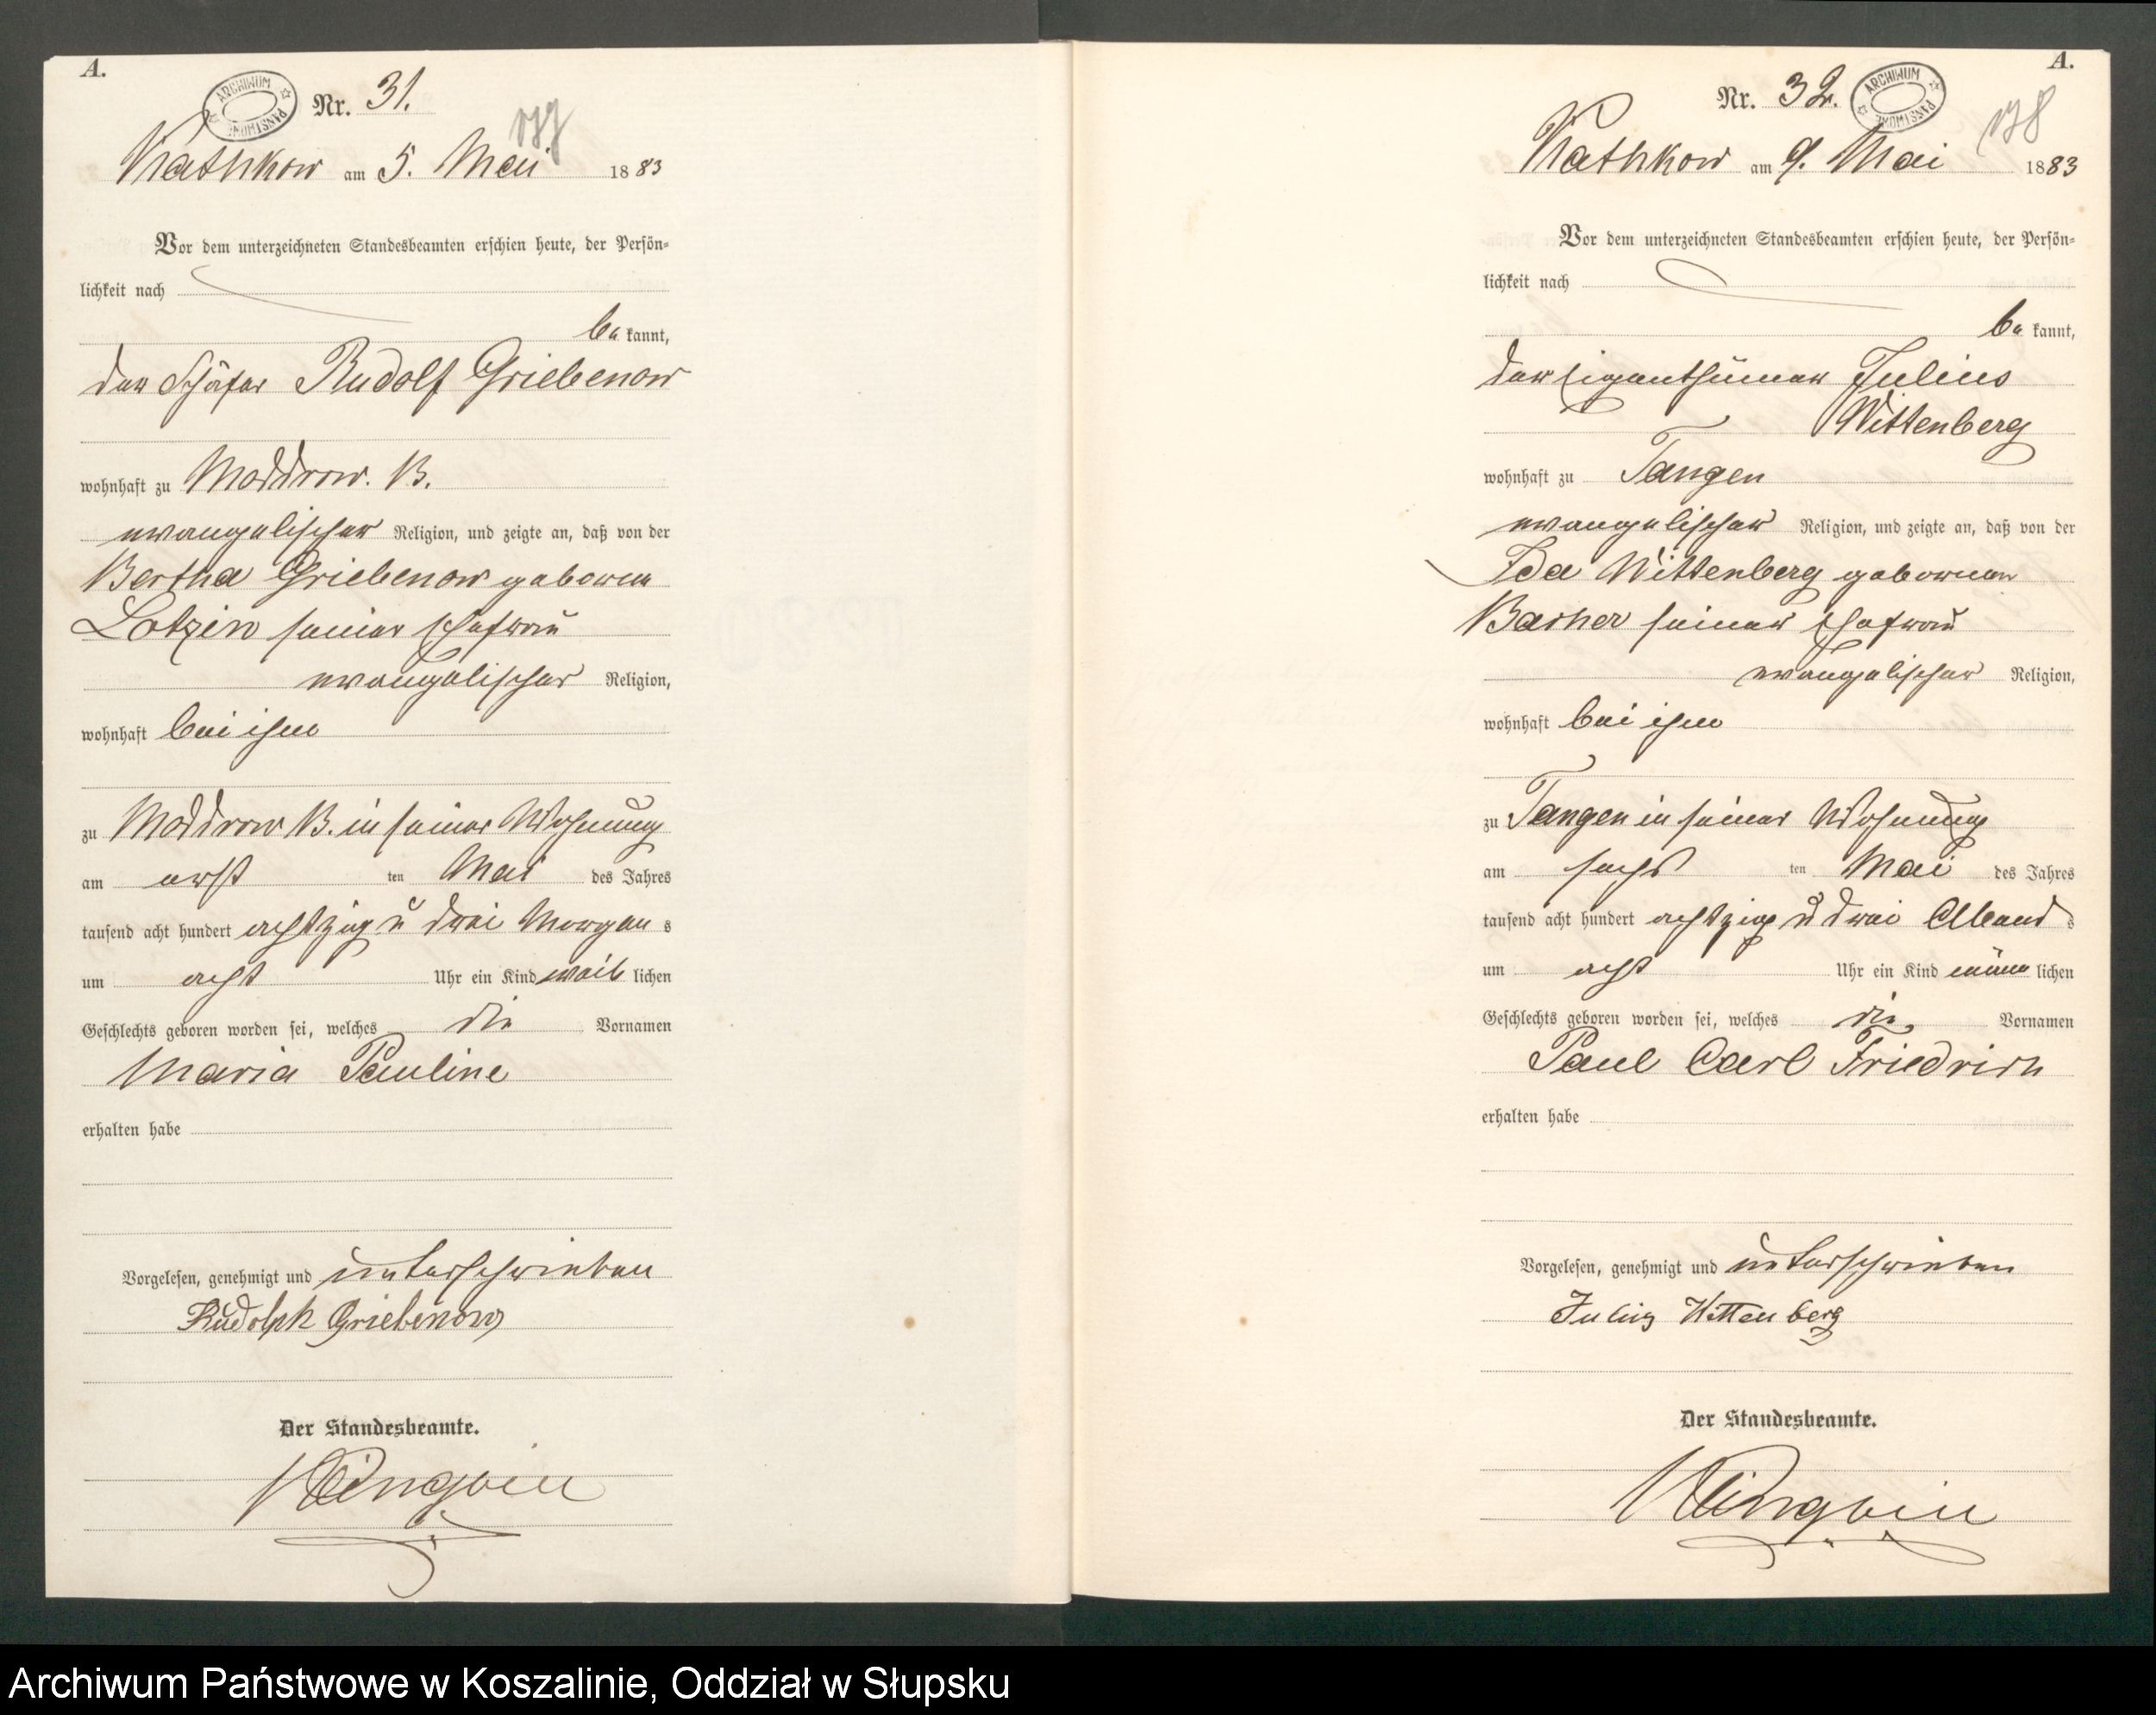 A.
ARCHIWUM PAŃSTWOWE
Nr. 31.
177
Rathkow am 5. Mai 1883
Vor dem unterzeichneten Standesbeamten erschien heute, der Persön=
lichkeit nach
be kannt,
der Schäfer Rudolf Griebenow
wohnhaft zu Moddrow. B.
evangelischer Religion, und zeigte an, daß von der
Bertha Griebenow geboren
Lotzin seiner Ehefrau
evangelischer Religion,
wohnhaft bei ihm
zu Moddrow B. in seiner Wohnung
am erst ten Mai des Jahres
tausend acht hundert achtzig u drei Morgen s
um acht Uhr ein Kind weib lichen
Geschlechts geboren worden sei, welches die Vornamen
Maria Pauline
erhalten habe
Vorgelesen, genehmigt und unterschrieben
Rudolph Griebenow
Der Standesbeamte.
A.
Nr. 32.
ARCHIWUM PAŃSTWOWE
178
Rathkow am 9. Mai 1883
Vor dem unterzeichneten Standesbeamten erschien heute, der Persön=
lichkeit nach
be kannt,
der Eigenthümer Julius
Wittenberg
wohnhaft zu Tangen
evangelischer Religion, und zeigte an, daß von der
Ida Wittenberg geborenen
seiner Ehefrau
evangelischer Religion,
wohnhaft bei ihm
zu Tangen in seiner Wohnung
am sechs ten Mai des Jahres
tausend acht hundert achtzig u drei Abend s
um acht Uhr ein Kind männ lichen
Geschlechts geboren worden sei, welches die Vornamen
Paul Carl Friedrich
erhalten habe
Vorgelesen, genehmigt und unterschrieben
Julius Wittenberg
Der Standesbeamte.
Archiwum Państwowe w Koszalinie, Oddział w Słupsku